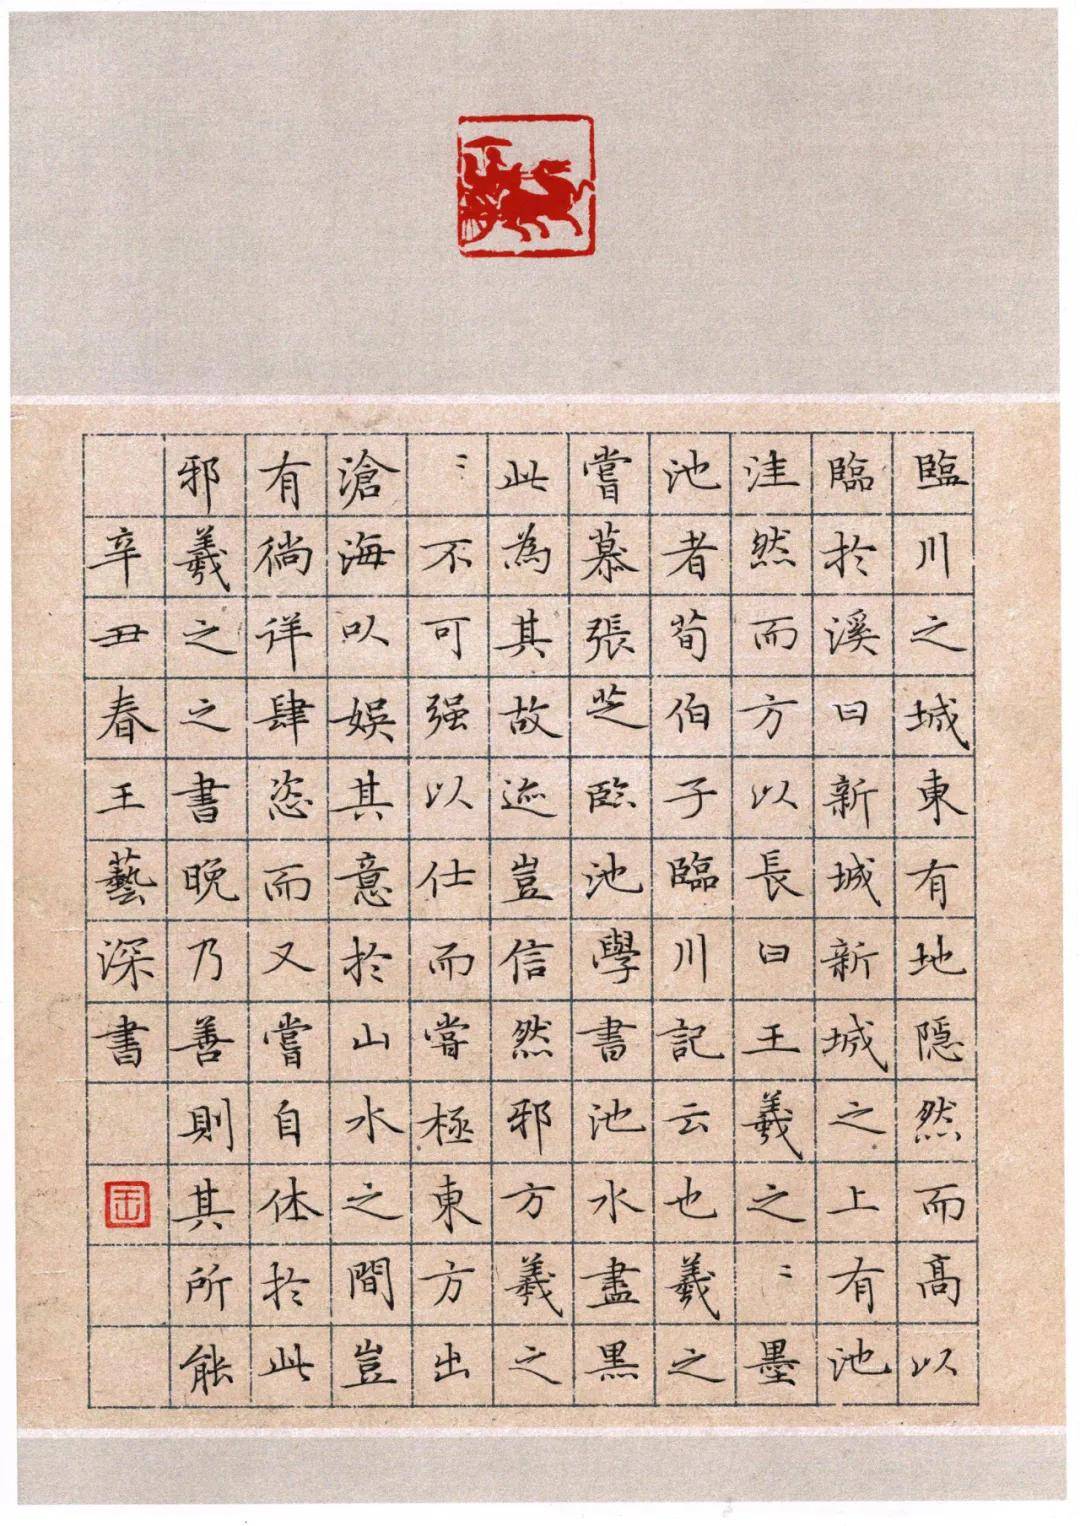 臨川之城東有地隱然而高以
臨於溪曰新城新城之上有池
洼然而方以長曰王羲之〻墨
池者荀伯子臨川記云也羲之
嘗慕張芝臨池學書池水盡黑
此為其故迹豈信然邪方羲之
〻不可强以仕而嘗極東方出
滄海以娛其意於山水之間豈
有徜徉肆恣而又嘗自体於此
邪羲之之書晚乃善則其所能
辛丑春王藝深書